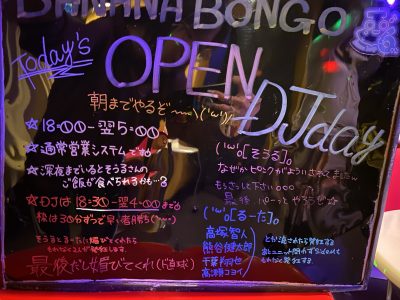 BANANA BONGO
Today's
OPEN
DJday
朝までやるぞ〜〜\('ω')/
☆ 18:00-翌5:00
☆ 通常営業システムです
☆ 深夜までいるとそうるさんの
ご飯が食べられるかも…
☆ DJは 18:30-翌4:00まで
枠は30分ずつで早い者勝ち
('ω'o[そうる]o
なぜかピックがようい
もらって下さい。。。
('ω'o[るーた]o
高塚智人
熊谷健太郎
千葉翔也
高瀬コヨイ
とか流されたら発狂する
発狂します。
最後だし媚びてくれ(直球)